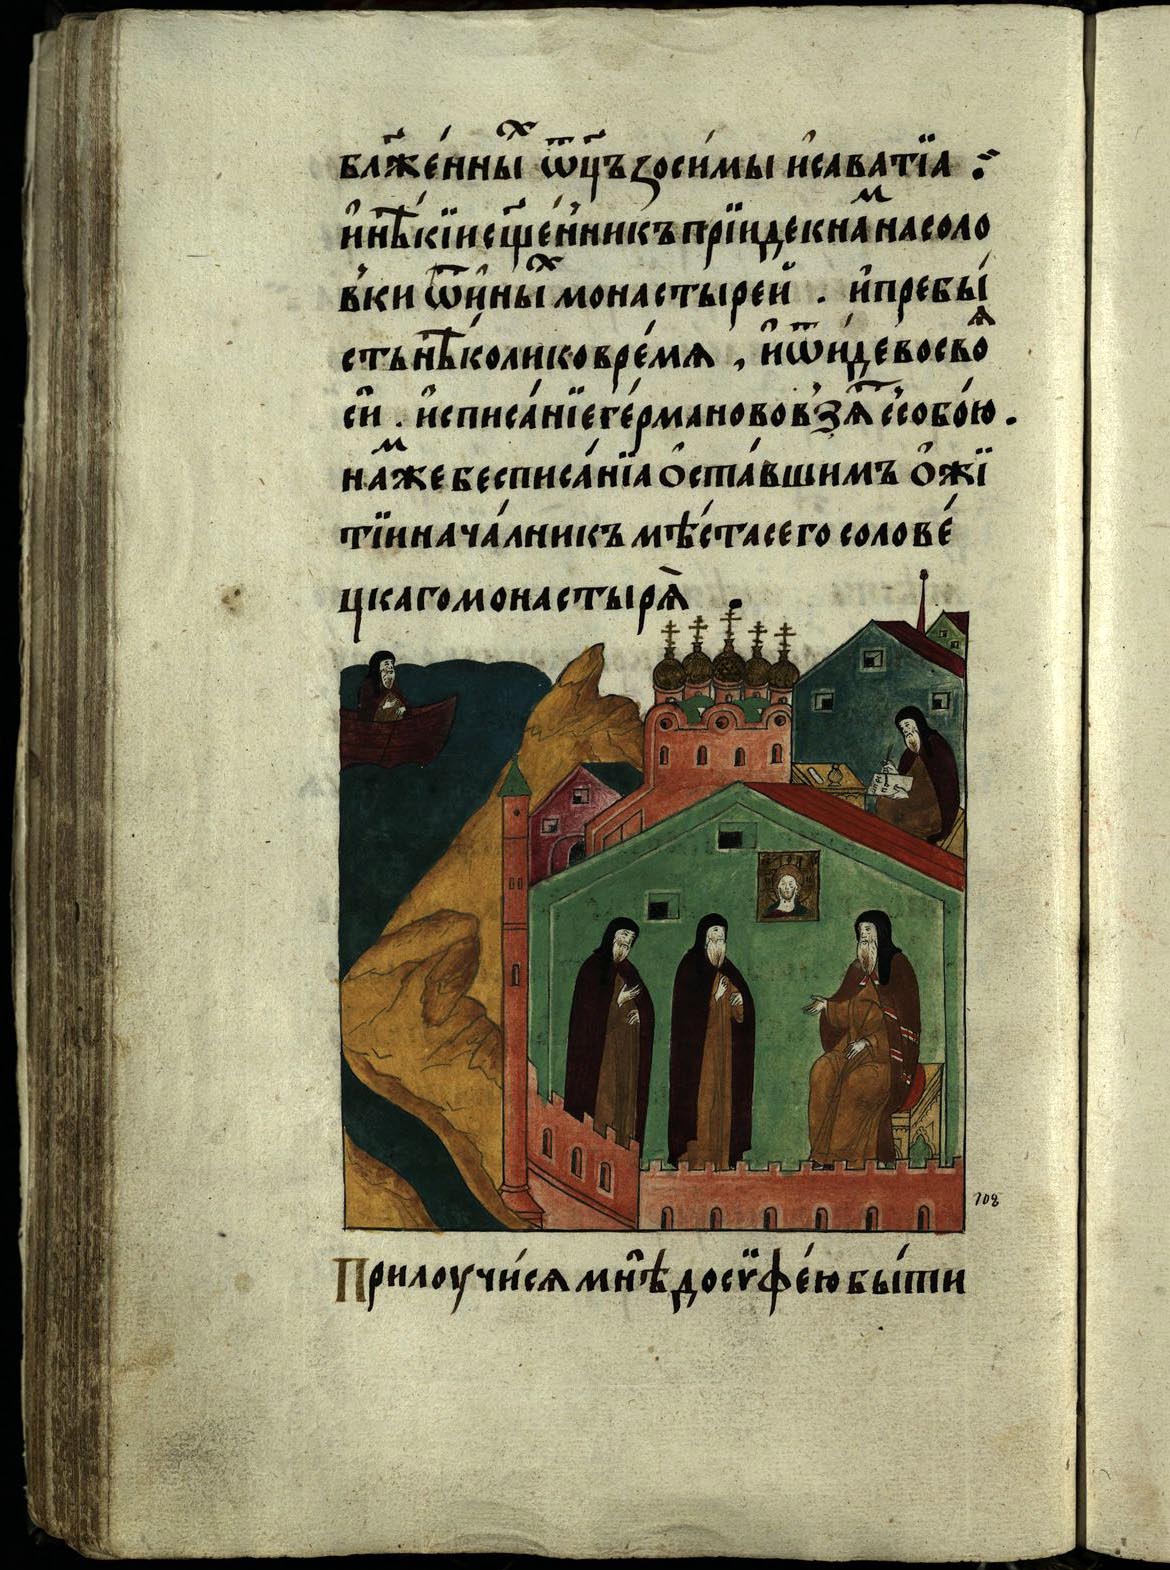 бл҃же́нныⷯ ѿц҃ъ зоси́мы и҆саватїа :
и҆нѣ́кїи сщ҃е́нникъ прїиде к наⷨ на соло
вки ѿ и҆ныⷯ монастырей . и҆ пребы́
сть нѣ́колико вре́мѧ , и҆ ѿи́де во своѧ
сѝ . и҆ списа́нїе ге́рманово взѧ́т с собо́ю .
наⷨ же бес писа́нїа ѡ҆ста́вшимъ ѡ҆ жї
тїи нача́лникъ мѣ́ста сего солове́
цкаго монастырѧ̀ .
108
Прилоучи́сѧ мнѣ̀ досиѳе́ю бы́ти